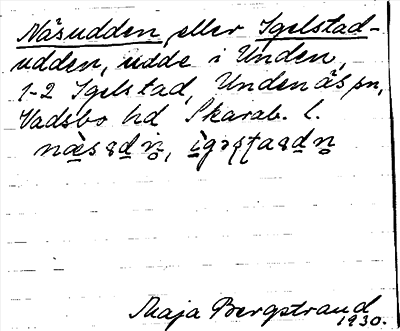 Näsudden, eller Igelstad-
udden, udde i Unden,
1-2 Igelstad, Undenäs sn,
Vadsbo hd Skarab. l.
Maja Bergstrand
1930.